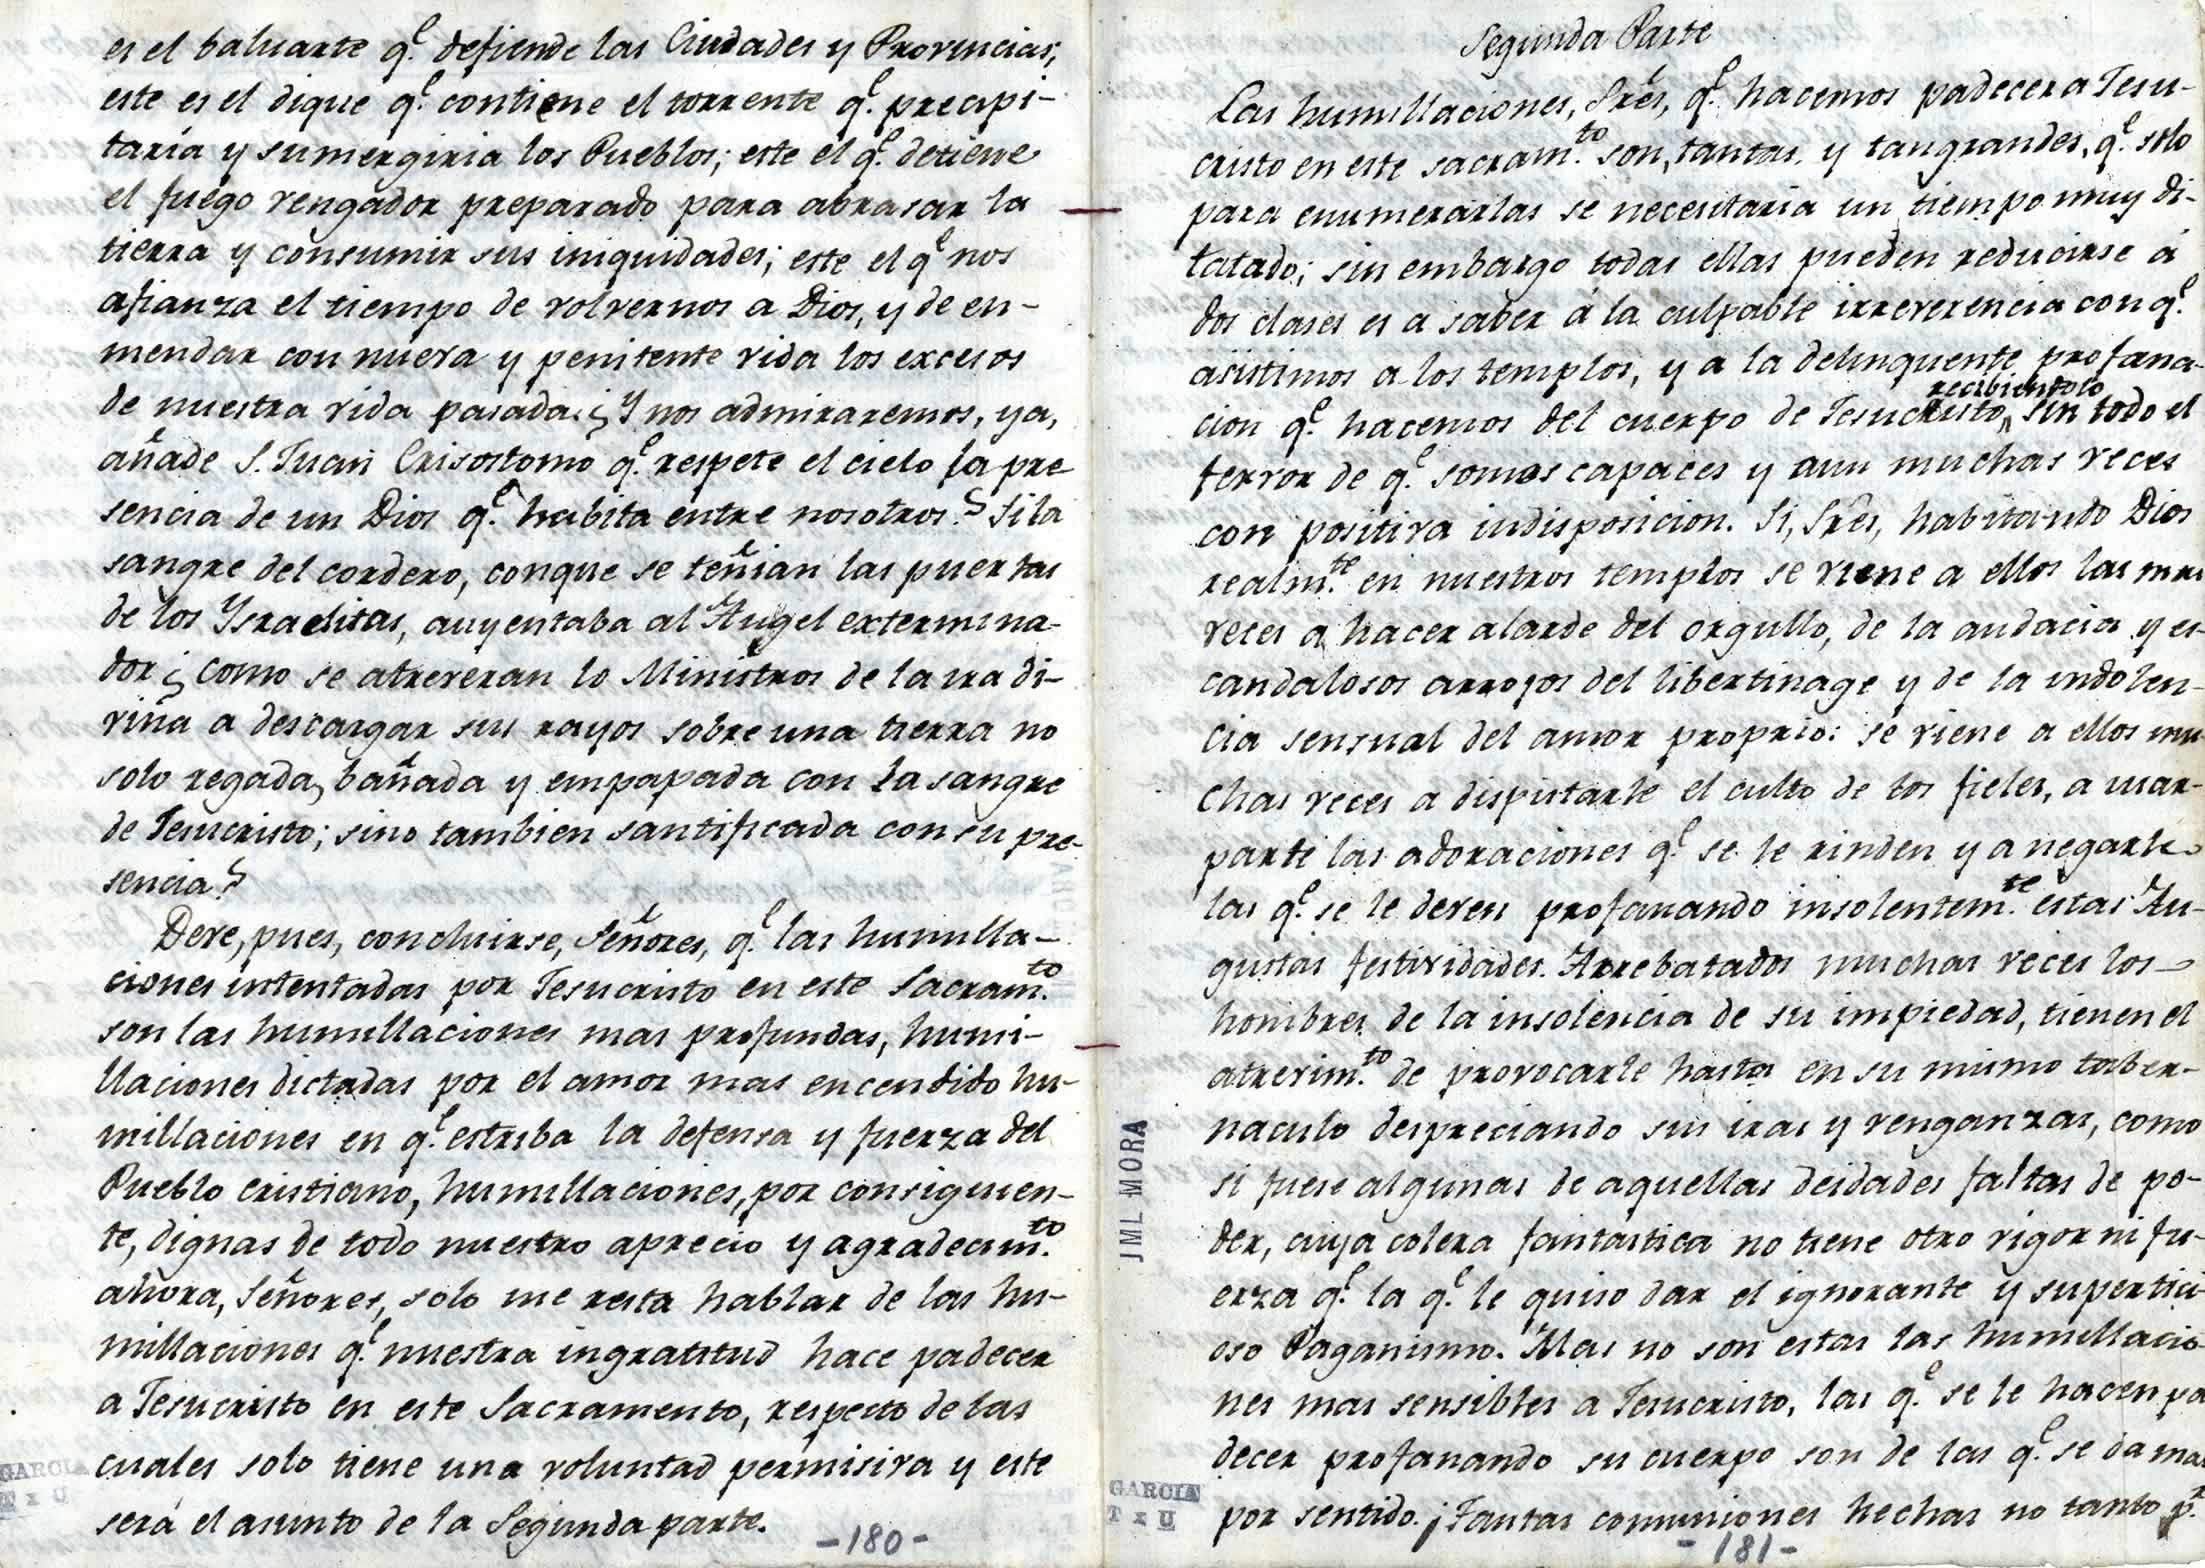 es el baluarte q.e defiende las Ciudades y Provincias;
este es el dique q.e contiene el torrente q.e precipi-
taria y sumergiria los Pueblos; este el q.e detiene
el fuego vengador preparado para abrasar la
tierra y consumir sus iniquidades; este el q.e nos
afianza el tiempo de volvernos a Dios, y de en-
mendar con nueva y penitente vida los excesos
de nuestra vida pasada. ¿Y nos admiraremos, ya,
añade S. Juan Crisostomo q.e respete el cielo la pre
sencia de un Dios q.e habita entre nosotros? Si la
sangre del cordero, conque se teñian las puertas
de los Ysraelitas, auyentaba al Angel extermina-
dor ¿como se atreveran lo Ministros de la ira di-
vina a descargar sus rayos sobre una tierra no
solo regada, bañada y empapada con la sangre
de Jesucristo; sino tambien santificada con su pre-
sencia?
Deve, pues, concluirse, Señores, q.e las humilla-
ciones intentadas por Jesucristo en este Sacram.to
son las humillaciones mas profundas, humi-
llaciones dictadas por el amor mas encendido hu-
millaciones en q.e estriba la defensa y fuerza del
Pueblo cristiano, humillaciones, por consiguien-
te, dignas de todo nuestro aprecio y agradecim.to
ahora, Señores, solo me resta hablar de las hu-
millaciones q.e nuestra ingratitud hace padecer
a Jesucristo en este Sacramento, respecto de las
cuales solo tiene una voluntad permisiva y este
será el asunto de la Segunda parte.
-180-
GARCIA
T x U
Segunda Parte
Las humillaciones, Sres, q.e hacemos padecer a Jesu-
cristo en este sacram.to son, tantas, y tan grandes, q.e solo
para enumerarlas se necesitaria un tiempo muy di-
latado; sin embargo todas ellas pueden reducirse á
dos clases es a saber á la culpable irreverencia con q.e
asistimos a los templos, y a la delinquente profana-
cion q.e hacemos del cuerpo de Jesucristo recibiendolo sin todo el
fervor de q.e somos capaces y aun muchas veces
con positiva indisposicion. Si, Sres, habitando Dios
realm.te en nuestros templos se viene a ellos las mas
veces a hacer alarde del orgullo, de la audacia y es-
candalosos arrojos del libertinage y de la indolen-
cia sensual del amor proprio: se viene a ellos mu-
chas veces a disputarle el culto de los fieles, a usur-
parle las adoraciones q.e se le rinden y a negarle
las q.e se le deven profanando insolentem.te estas Au-
gustas festividades. Arrebatados muchas veces los
hombres de la insolencia de su impiedad, tienen el
atrevim.to de provocarle hasta en su mismo taber-
naculo despreciando sus iras y venganzas, como
si fuese algunas de aquellas deidades faltas de po-
der, cuya colera fantastica no tiene otro vigor ni fu-
erza q.e la q.e le quiso dar el ignorante y supertici
oso Paganismo. Mas no son estas las humillacio-
nes mas sensibles a Jesucristo, las q.e se le hacen pa
decer profanando su cuerpo son de las q.e se da mas
por sentido. ¡Tantas comuniones hechas no tanto p.r
-181-
JML MORA
GARCIA
T x U